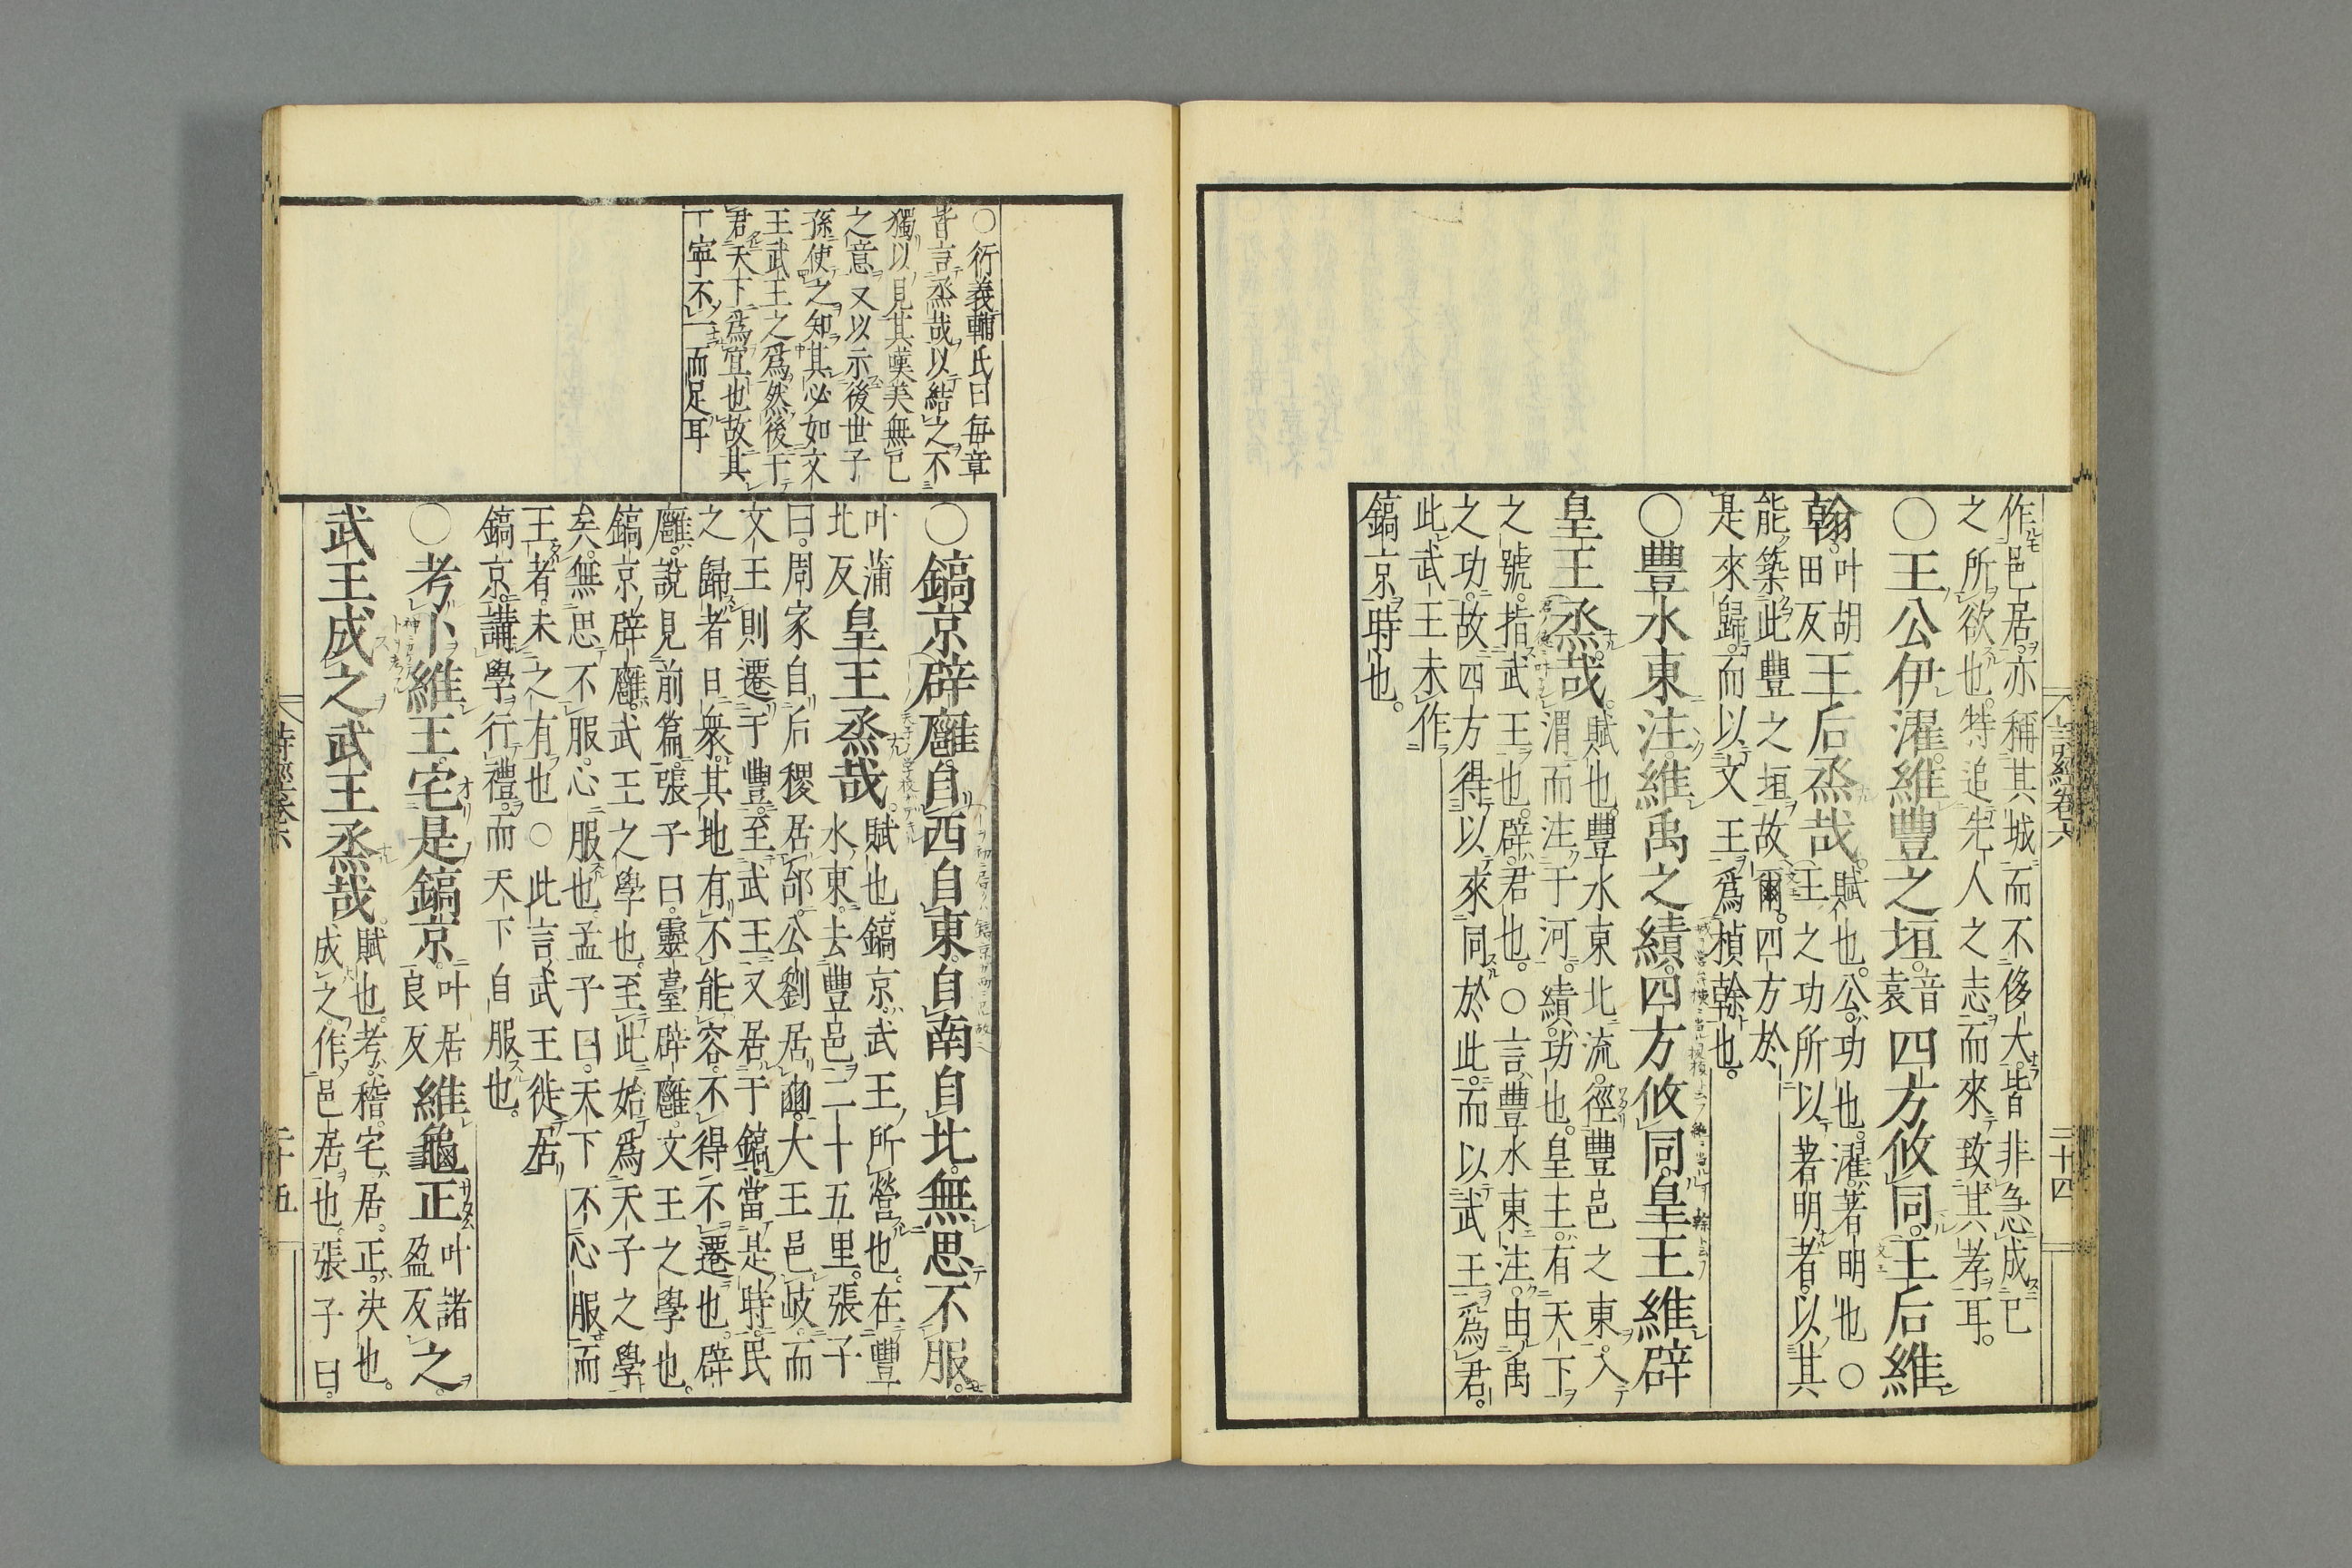 詩經卷六
二十四
作邑居。亦稱其城而不侈大。皆非急成己
之所欲也。特追先人之志而來致其孝耳。
○王公伊濯。維豐之垣。音袁四方攸同。王后維
翰。叶胡田反王后烝哉。賦也。公功也。濯著明也○
王之功所以著明者。以其
能築此豐之垣故爾。四方於
是來歸。而以文王爲楨幹也。
○豐水東注。維禹之績。四方攸同。皇王維辟
皇王烝哉。賦也。豐水東北流。徑豐邑之東。入
渭而注于河。績。功也。皇王。有天下
之號。指武王也。辟。君也。○言豐水東注。由禹
之功。故四方得以來同於此。而以武王爲君。
此武王未作
鎬京時也。
○衍義輔氏曰每章
皆言烝哉以結之不
獨以見其嘆美無已
之意又以示後世子
孫使之知其必如文
王武王之爲然後于
君天下爲宜也故其
丁寧不一而足耳
○鎬京辟廱。自西自東。自南自北。無思不服。
叶蒲北反皇王烝哉。賦也。鎬京。武王所營也。在豐
水東。去豐邑二十五里。張子
曰。周家自后稷居邰。公劉居豳。大王邑岐。而
文王則遷于豐。至武王又居于鎬。當是時。民
之歸者日衆。其地有不能容。不得不遷也。辟
廱。說見前篇。張子曰。靈臺辟廱。文王之學也。
鎬京辟廱。武王之學也。至此始爲天子之學
矣。無思不服。心服也。孟子曰。天下不心服而
王者。未之有也○此言武王徙居
鎬京。講學行禮。而天下自服也。
○考卜維王。宅是鎬京。叶居良反維龜正叶諸盈反之。
武王成之武王烝哉。賦也。考。稽。宅。居。正。決也。
成之。作邑居也。張子曰。
詩經卷六
二十五